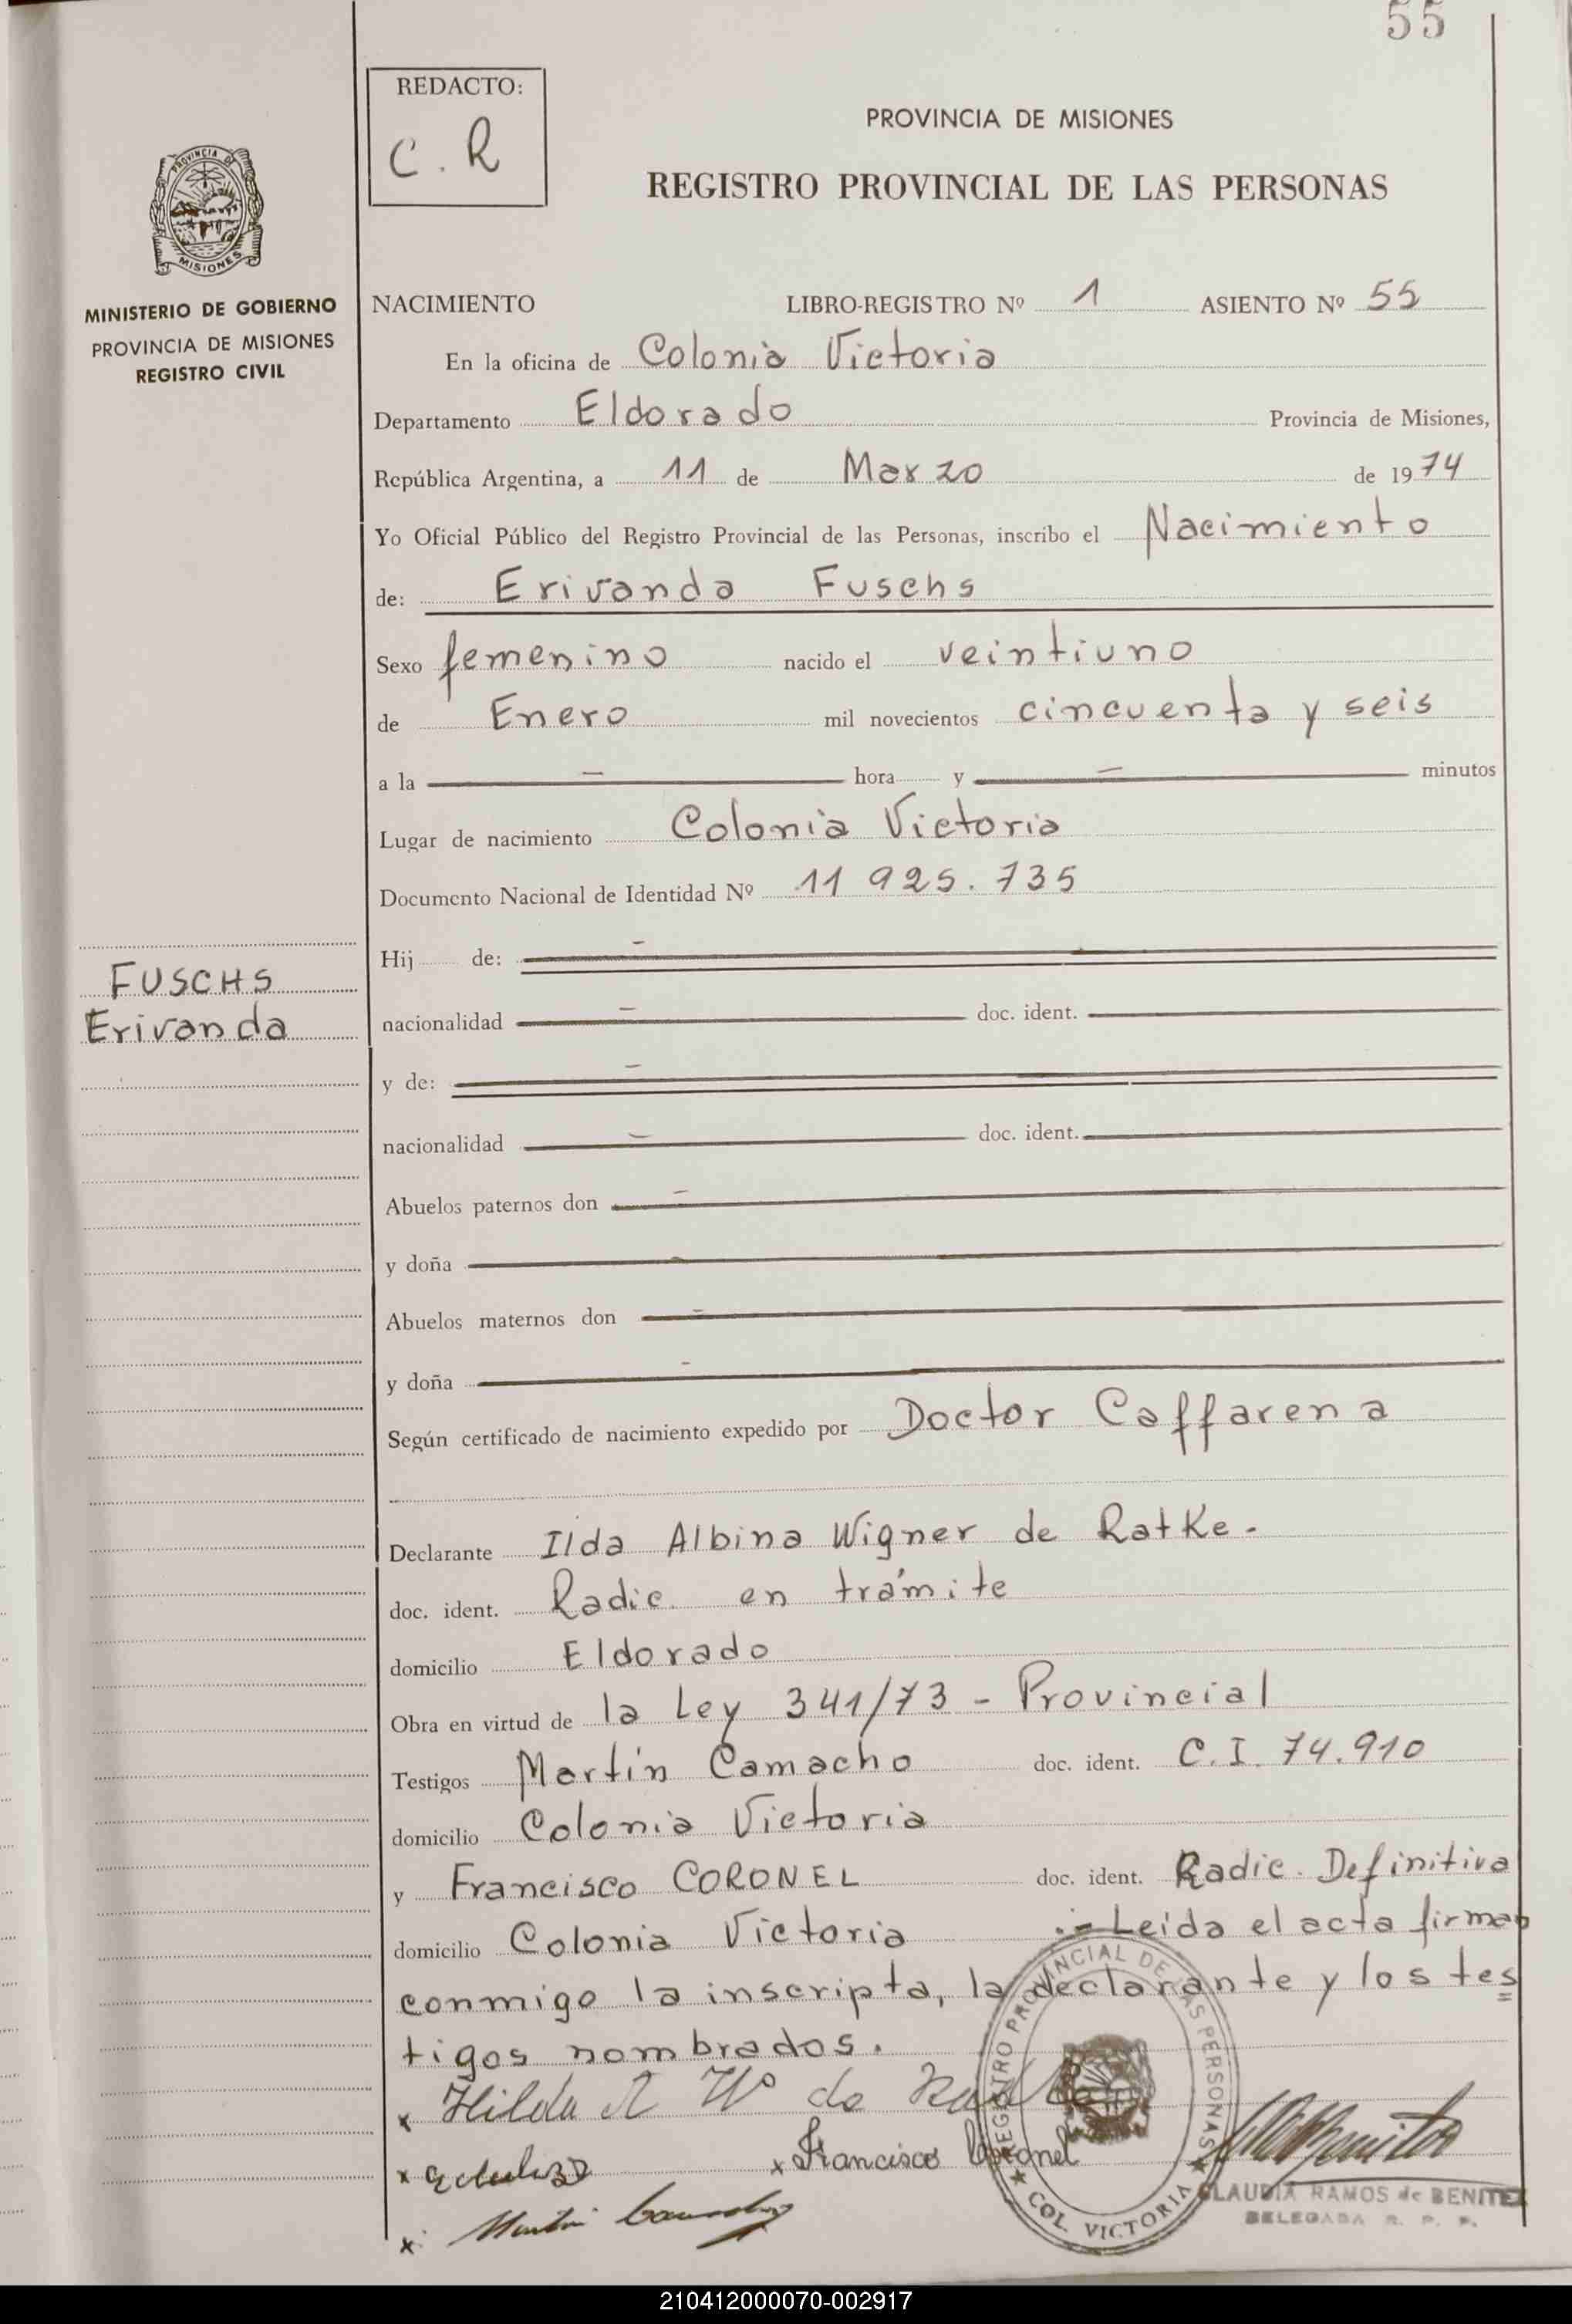 55
REDACTO:
C. R
PROVINCIA DE MISIONES
REGISTRO PROVINCIAL DE LAS PERSONAS
PROVINCIA DE
MISIONES
MINISTERIO DE GOBIERNO
PROVINCIA DE MISIONES
REGISTRO CIVIL
NACIMIENTO LIBRO-REGISTRO Nº 1 ASIENTO Nº 55
En la oficina de Colonia Victoria
Departamento Eldorado Provincia de Misiones,
República Argentina, a 11 de Marzo de 1974
Yo Oficial Público del Registro Provincial de las Personas, inscribo el Nacimiento
de: Erivanda Fuschs
Sexo femenino nacido el veintiuno
de Enero mil novecientos cincuenta y seis
a la — hora y — minutos
Lugar de nacimiento Colonia Victoria
Documento Nacional de Identidad Nº 11 925.735
Hij de: —
FUSCHS
Erivanda
nacionalidad — doc. ident.
y de: —
nacionalidad — doc. ident.
Abuelos paternos don —
y doña
Abuelos maternos don —
y doña —
Según certificado de nacimiento expedido por Doctor Caffarena
Declarante Ilda Albina Wigner de Ratke.
doc. ident. Radic. en trámite
domicilio Eldorado
Obra en virtud de la Ley 341/73 - Provincial
Testigos Martín Camacho doc. ident. C.I. 74.910
domicilio Colonia Victoria
y Francisco CORONEL doc. ident. Radic. Definitiva
domicilio Colonia Victoria .- Leída el acta firman
conmigo la inscripta, la declarante y los tes
tigos nombrados.
x Hilda A Wº de
x
x Francisco Coronel
x Martin Camacho
REGISTRO PROVINCIAL DE LAS PERSONAS
COL. VICTORIA
CLAUDIA RAMOS de BENITEZ
DELEGADA R. P. P.
210412000070-002917